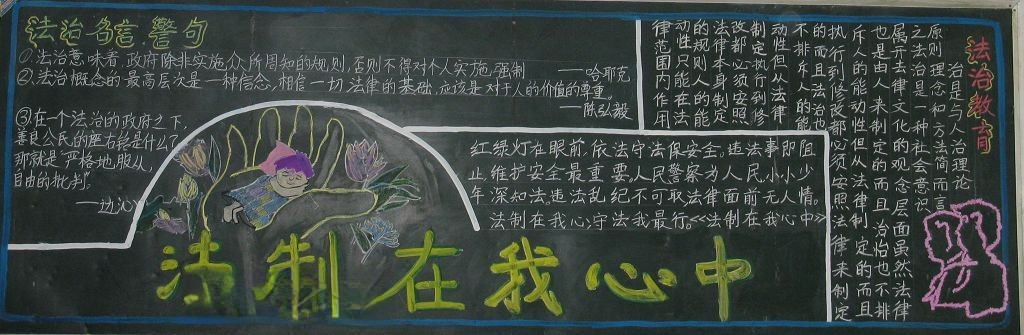 法治名言.警句
①.法治意味着,政府除非实施众所周知的规则,否则不得对个人实施强制
——哈耶克
②.法治概念的最高层次是一种信念,相信一切法律的基础,应该是对于人的价值的尊重。
——陈弘毅
③在一个法治的政府之下,
善良公民的座右铭是什么?
那就是"严格地服从,
自由的批判"。
——边沁
法治教育
治是与人治理论
原则理念和方法简而言
之法治是一种社会意识
属于法律文化的观念层面虽然法律
也是由人来制定的而且法治也不排
斥人的能动性但从法律制定的而且
执行到修改都必须安照法律来制定
的而且法治也
不排斥人的能
动性但从法律
制定执行到修
改都必须安照
法律本身制定
的规则人的能
动性只能在法
律范围内作用
红绿灯在眼前,依法守法保安全。违法事即阻
止,维护安全最重要。人民警察为人民小小少
年深知法,违法乱纪不可取。法律面前无人情。
法制在我心,守法我最行。《法制在我心中》
法制在我心中